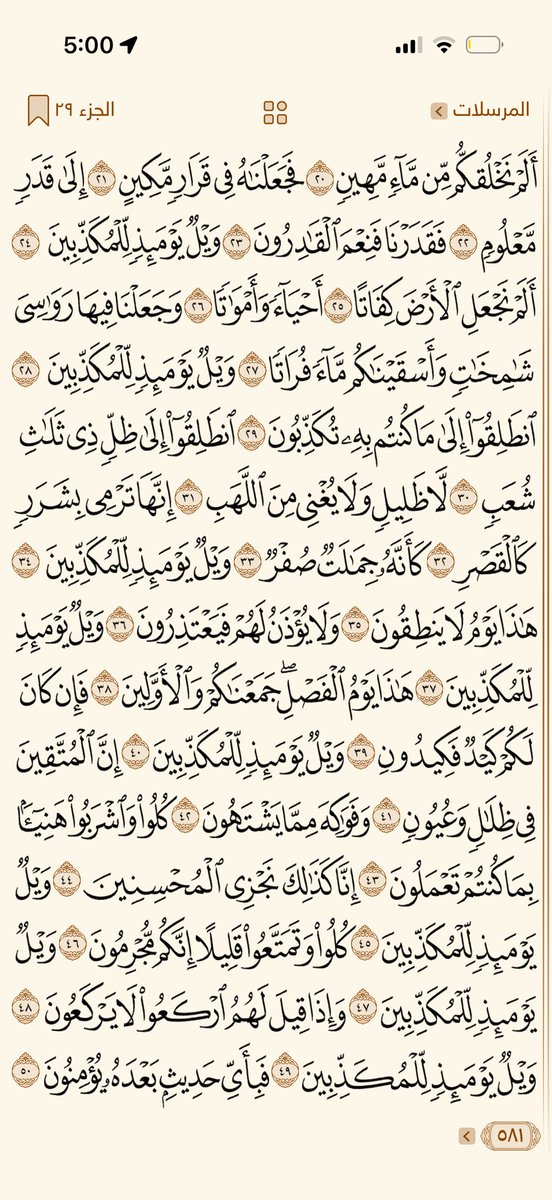 5:00
المرسلات
الجزء ٢٩
أَلَمۡ نَخۡلُقكُّم مِّن مَّآءٖ مَّهِينٖ ٢٠ فَجَعَلۡنَٰهُ فِي قَرَارٖ مَّكِينٍ ٢١ إِلَىٰ قَدَرٖ
مَّعۡلُومٖ ٢٢ فَقَدَرۡنَا فَنِعۡمَ ٱلۡقَٰدِرُونَ ٢٣ وَيۡلٞ يَوۡمَئِذٖ لِّلۡمُكَذِّبِينَ ٢٤
أَلَمۡ نَجۡعَلِ ٱلۡأَرۡضَ كِفَاتًا ٢٥ أَحۡيَآءٗ وَأَمۡوَٰتٗا ٢٦ وَجَعَلۡنَا فِيهَا رَوَٰسِيَ
شَٰمِخَٰتٖ وَأَسۡقَيۡنَٰكُم مَّآءٗ فُرَاتٗا ٢٧ وَيۡلٞ يَوۡمَئِذٖ لِّلۡمُكَذِّبِينَ ٢٨
ٱنطَلِقُوٓاْ إِلَىٰ مَا كُنتُم بِهِۦ تُكَذِّبُونَ ٢٩ ٱنطَلِقُوٓاْ إِلَىٰ ظِلّٖ ذِي ثَلَٰثِ
شُعَبٖ ٣٠ لَّا ظَلِيلٖ وَلَا يُغۡنِي مِنَ ٱللَّهَبِ ٣١ إِنَّهَا تَرۡمِي بِشَرَرٖ
كَٱلۡقَصۡرِ ٣٢ كَأَنَّهُۥ جِمَٰلَتٞ صُفۡرٞ ٣٣ وَيۡلٞ يَوۡمَئِذٖ لِّلۡمُكَذِّبِينَ ٣٤
هَٰذَا يَوۡمُ لَا يَنطِقُونَ ٣٥ وَلَا يُؤۡذَنُ لَهُمۡ فَيَعۡتَذِرُونَ ٣٦ وَيۡلٞ يَوۡمَئِذٖ
لِّلۡمُكَذِّبِينَ ٣٧ هَٰذَا يَوۡمُ ٱلۡفَصۡلِۖ جَمَعۡنَٰكُمۡ وَٱلۡأَوَّلِينَ ٣٨ فَإِن كَانَ
لَكُمۡ كَيۡدٞ فَكِيدُونِ ٣٩ وَيۡلٞ يَوۡمَئِذٖ لِّلۡمُكَذِّبِينَ ٤٠ إِنَّ ٱلۡمُتَّقِينَ
فِي ظِلَٰلٖ وَعُيُونٖ ٤١ وَفَوَٰكِهَ مِمَّا يَشۡتَهُونَ ٤٢ كُلُواْ وَٱشۡرَبُواْ هَنِيٓـَٔۢا
بِمَا كُنتُمۡ تَعۡمَلُونَ ٤٣ إِنَّا كَذَٰلِكَ نَجۡزِي ٱلۡمُحۡسِنِينَ ٤٤ وَيۡلٞ
يَوۡمَئِذٖ لِّلۡمُكَذِّبِينَ ٤٥ كُلُواْ وَتَمَتَّعُواْ قَلِيلًا إِنَّكُم مُّجۡرِمُونَ ٤٦ وَيۡلٞ
يَوۡمَئِذٖ لِّلۡمُكَذِّبِينَ ٤٧ وَإِذَا قِيلَ لَهُمُ ٱرۡكَعُواْ لَا يَرۡكَعُونَ ٤٨
وَيۡلٞ يَوۡمَئِذٖ لِّلۡمُكَذِّبِينَ ٤٩ فَبِأَيِّ حَدِيثِۭ بَعۡدَهُۥ يُؤۡمِنُونَ ٥٠
٥٨١